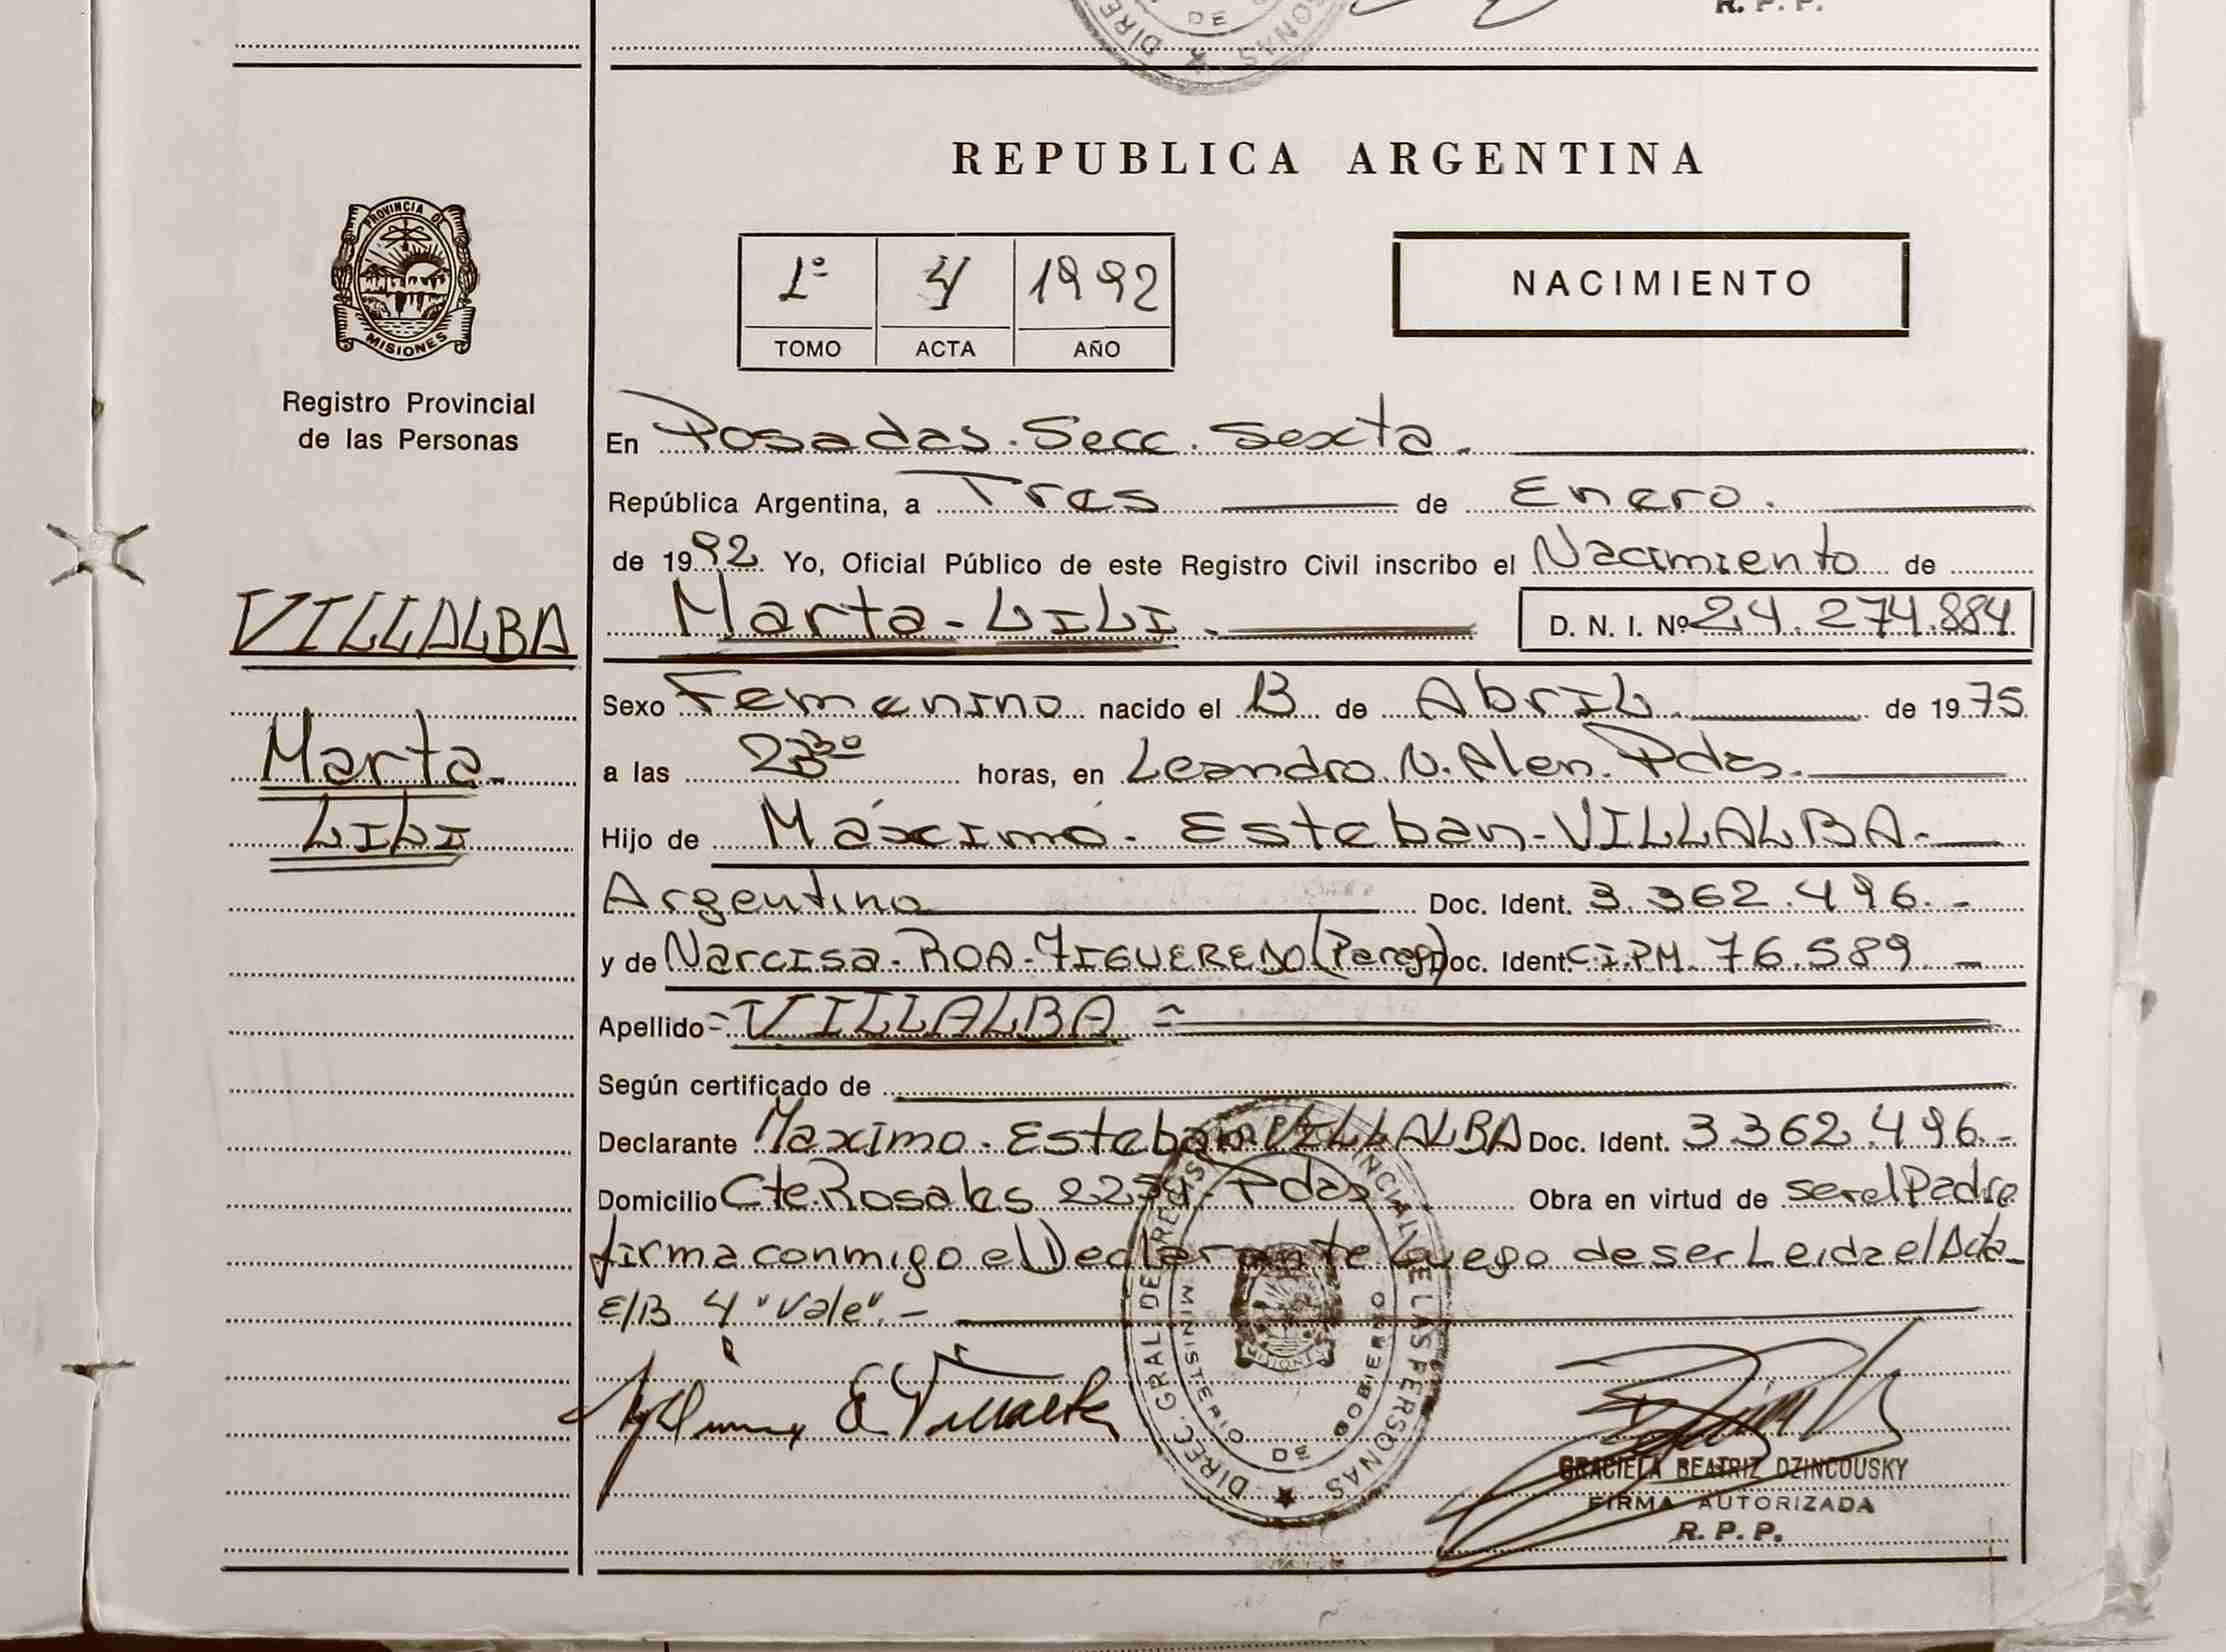 DE
R. P. P.
REPUBLICA ARGENTINA
PROVINCIA DE
MISIONES
Registro Provincial
de las Personas
1º 4 1992
TOMO ACTA AÑO
NACIMIENTO
En Posadas. Secc. Sexta.
República Argentina, a Tres de Enero.
de 1992 Yo, Oficial Público de este Registro Civil inscribo el Nacimiento de
VILLALBA
Marta
LILI
Marta - LILI. D. N. I. Nº 24.274.884
Sexo Femenino nacido el 13 de Abril de 1975
a las horas, en Leandro N. Alen. Pdas.
Hijo de Máximo - Esteban - VILLALBA -
Argentino Doc. Ident. 3.362.496. -
y de Narcisa - ROA - FIGUEREDO (Parag) Doc. Ident. C.I.PM. 76.589 -
Apellido = VILLALBA =
Según certificado de
Declarante Maximo - Esteban VILLALBA Doc. Ident. 3362.496 -
Domicilio Cte. Rosales Pdas Obra en virtud de ser el Padre
firma conmigo el Declarante Luego de ser Leida el Acta -
E/B 4 "Vale". -
E Villalba
DIREC. GRAL DE REGISTRO PROVINCIAL DE LAS PERSONAS
MINISTERIO DE GOBIERNO
MISIONES
GRACIELA BEATRIZ DZINCOUSKY
FIRMA AUTORIZADA
R. P. P.